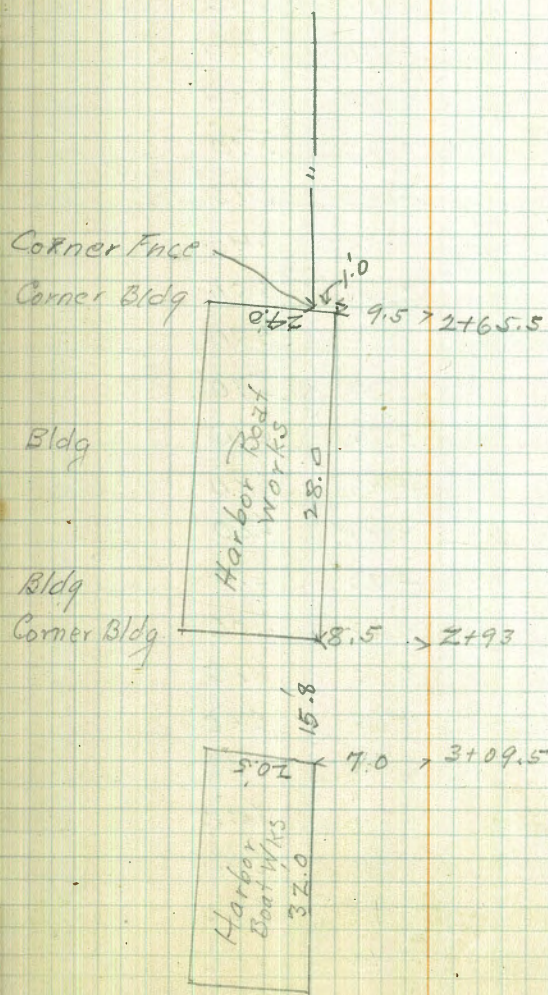 "
Corner Fnce
1.0
Corner Bldg
24.0
9.5 > 2+65.5
Bldg
Harbor Boat
Works
28.0
Bldg
Corner Bldg
8.5 > 2+93
15.8
20.5
7.0 > 3+09.5
Harbor
Boat Wks
32.0